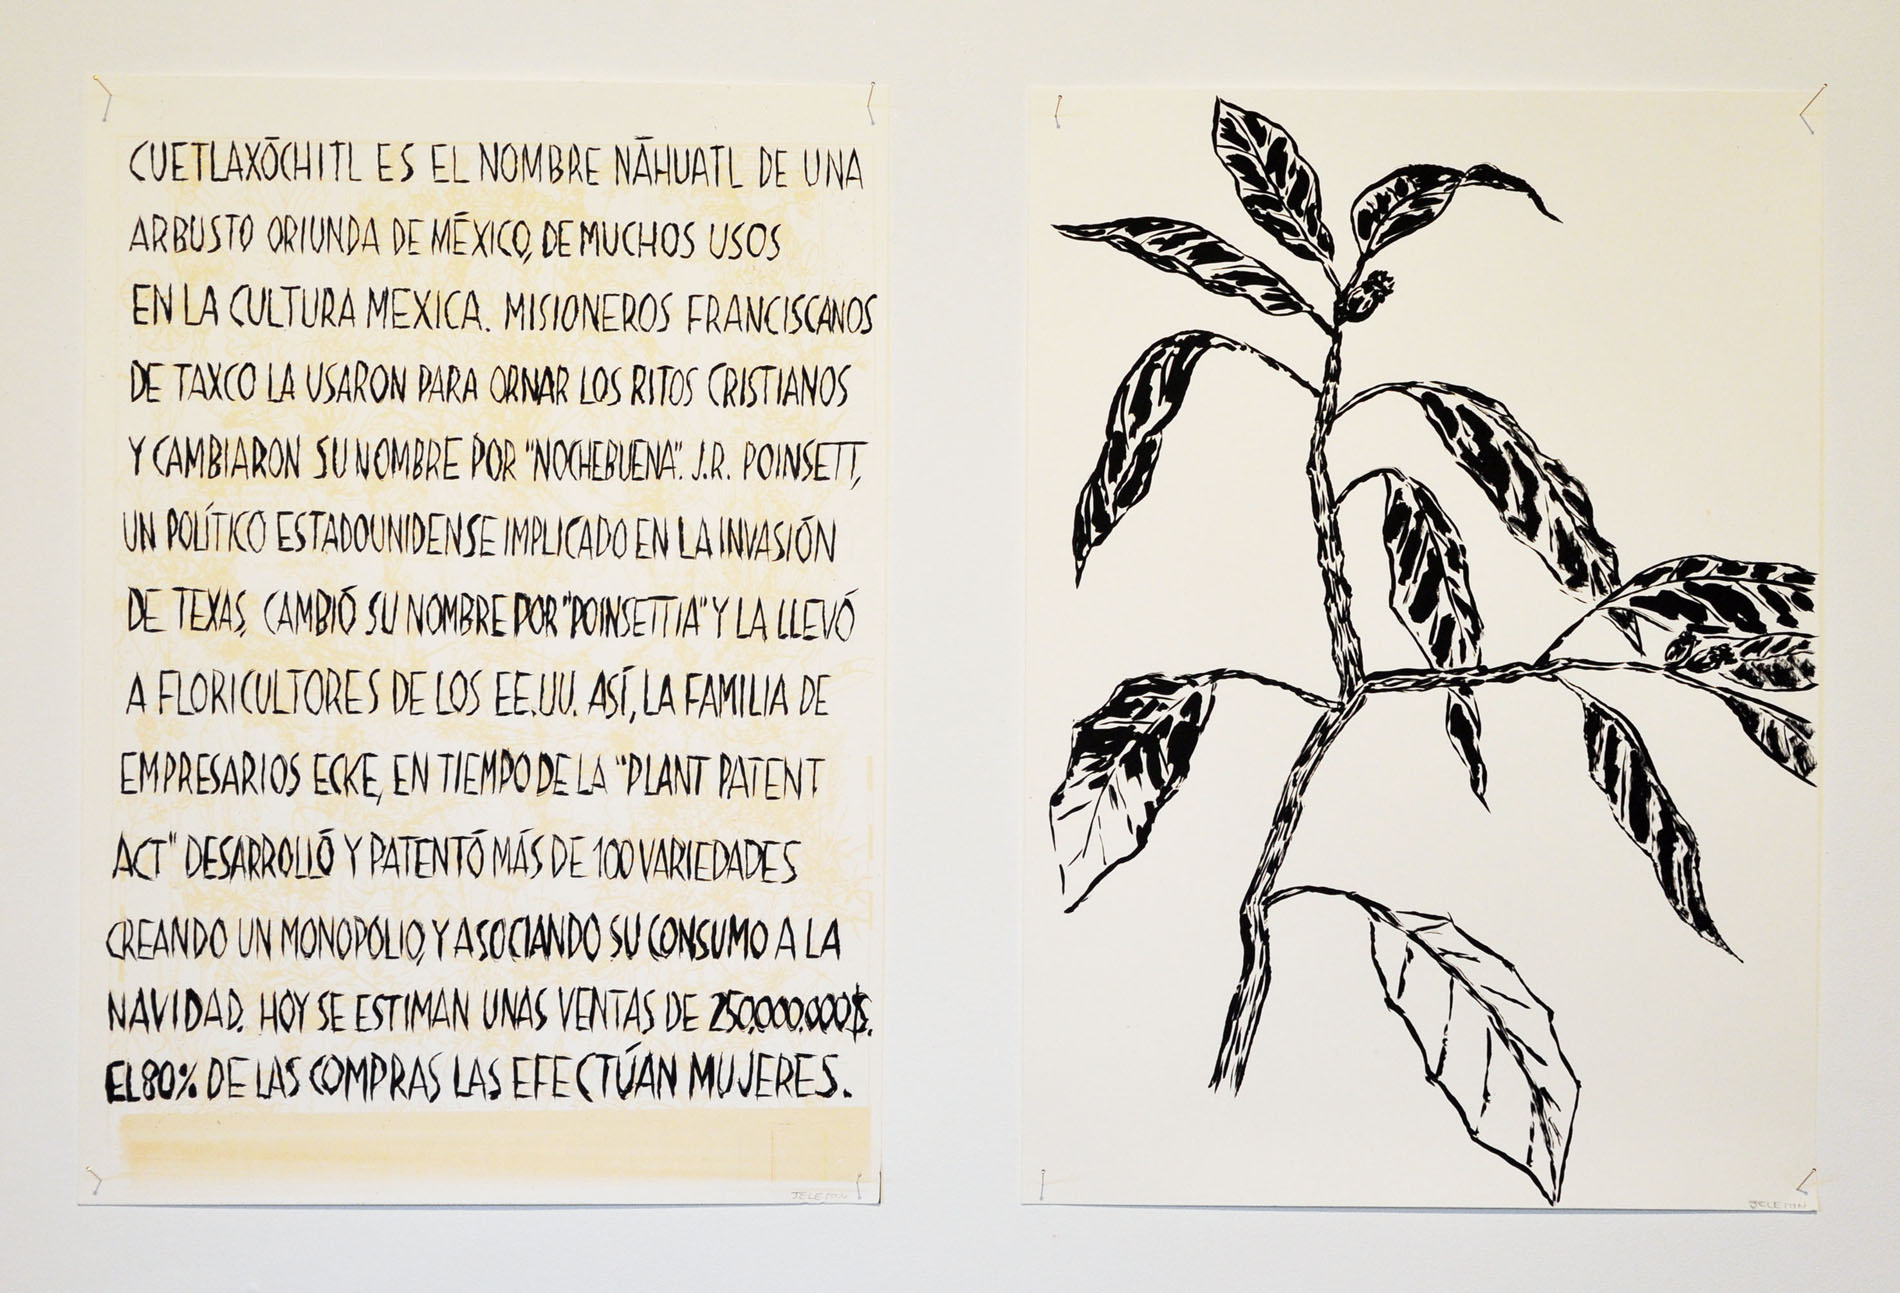 CUETLAXŌCHITL ES EL NOMBRE NĀHUATL DE UNA
ARBUSTO ORIUNDA DE MÉXICO, DE MUCHOS USOS
EN LA CULTURA MEXICA. MISIONEROS FRANCISCANOS
DE TAXCO LA USARON PARA ORNAR LOS RITOS CRISTIANOS
Y CAMBIARON SU NOMBRE POR "NOCHEBUENA". J.R. POINSETT,
UN POLÍTICO ESTADOUNIDENSE IMPLICADO EN LA INVASIÓN
DE TEXAS, CAMBIÓ SU NOMBRE POR "POINSETTIA" Y LA LLEVÓ
A FLORICULTORES DE LOS EE.UU. ASÍ, LA FAMILIA DE
EMPRESARIOS ECKE, EN TIEMPO DE LA "PLANT PATENT
ACT" DESARROLLÓ Y PATENTÓ MÁS DE 100 VARIEDADES
CREANDO UN MONOPOLIO, Y ASOCIANDO SU CONSUMO A LA
NAVIDAD. HOY SE ESTIMAN UNAS VENTAS DE 250.000.000$.
EL 80% DE LAS COMPRAS LAS EFECTÚAN MUJERES.